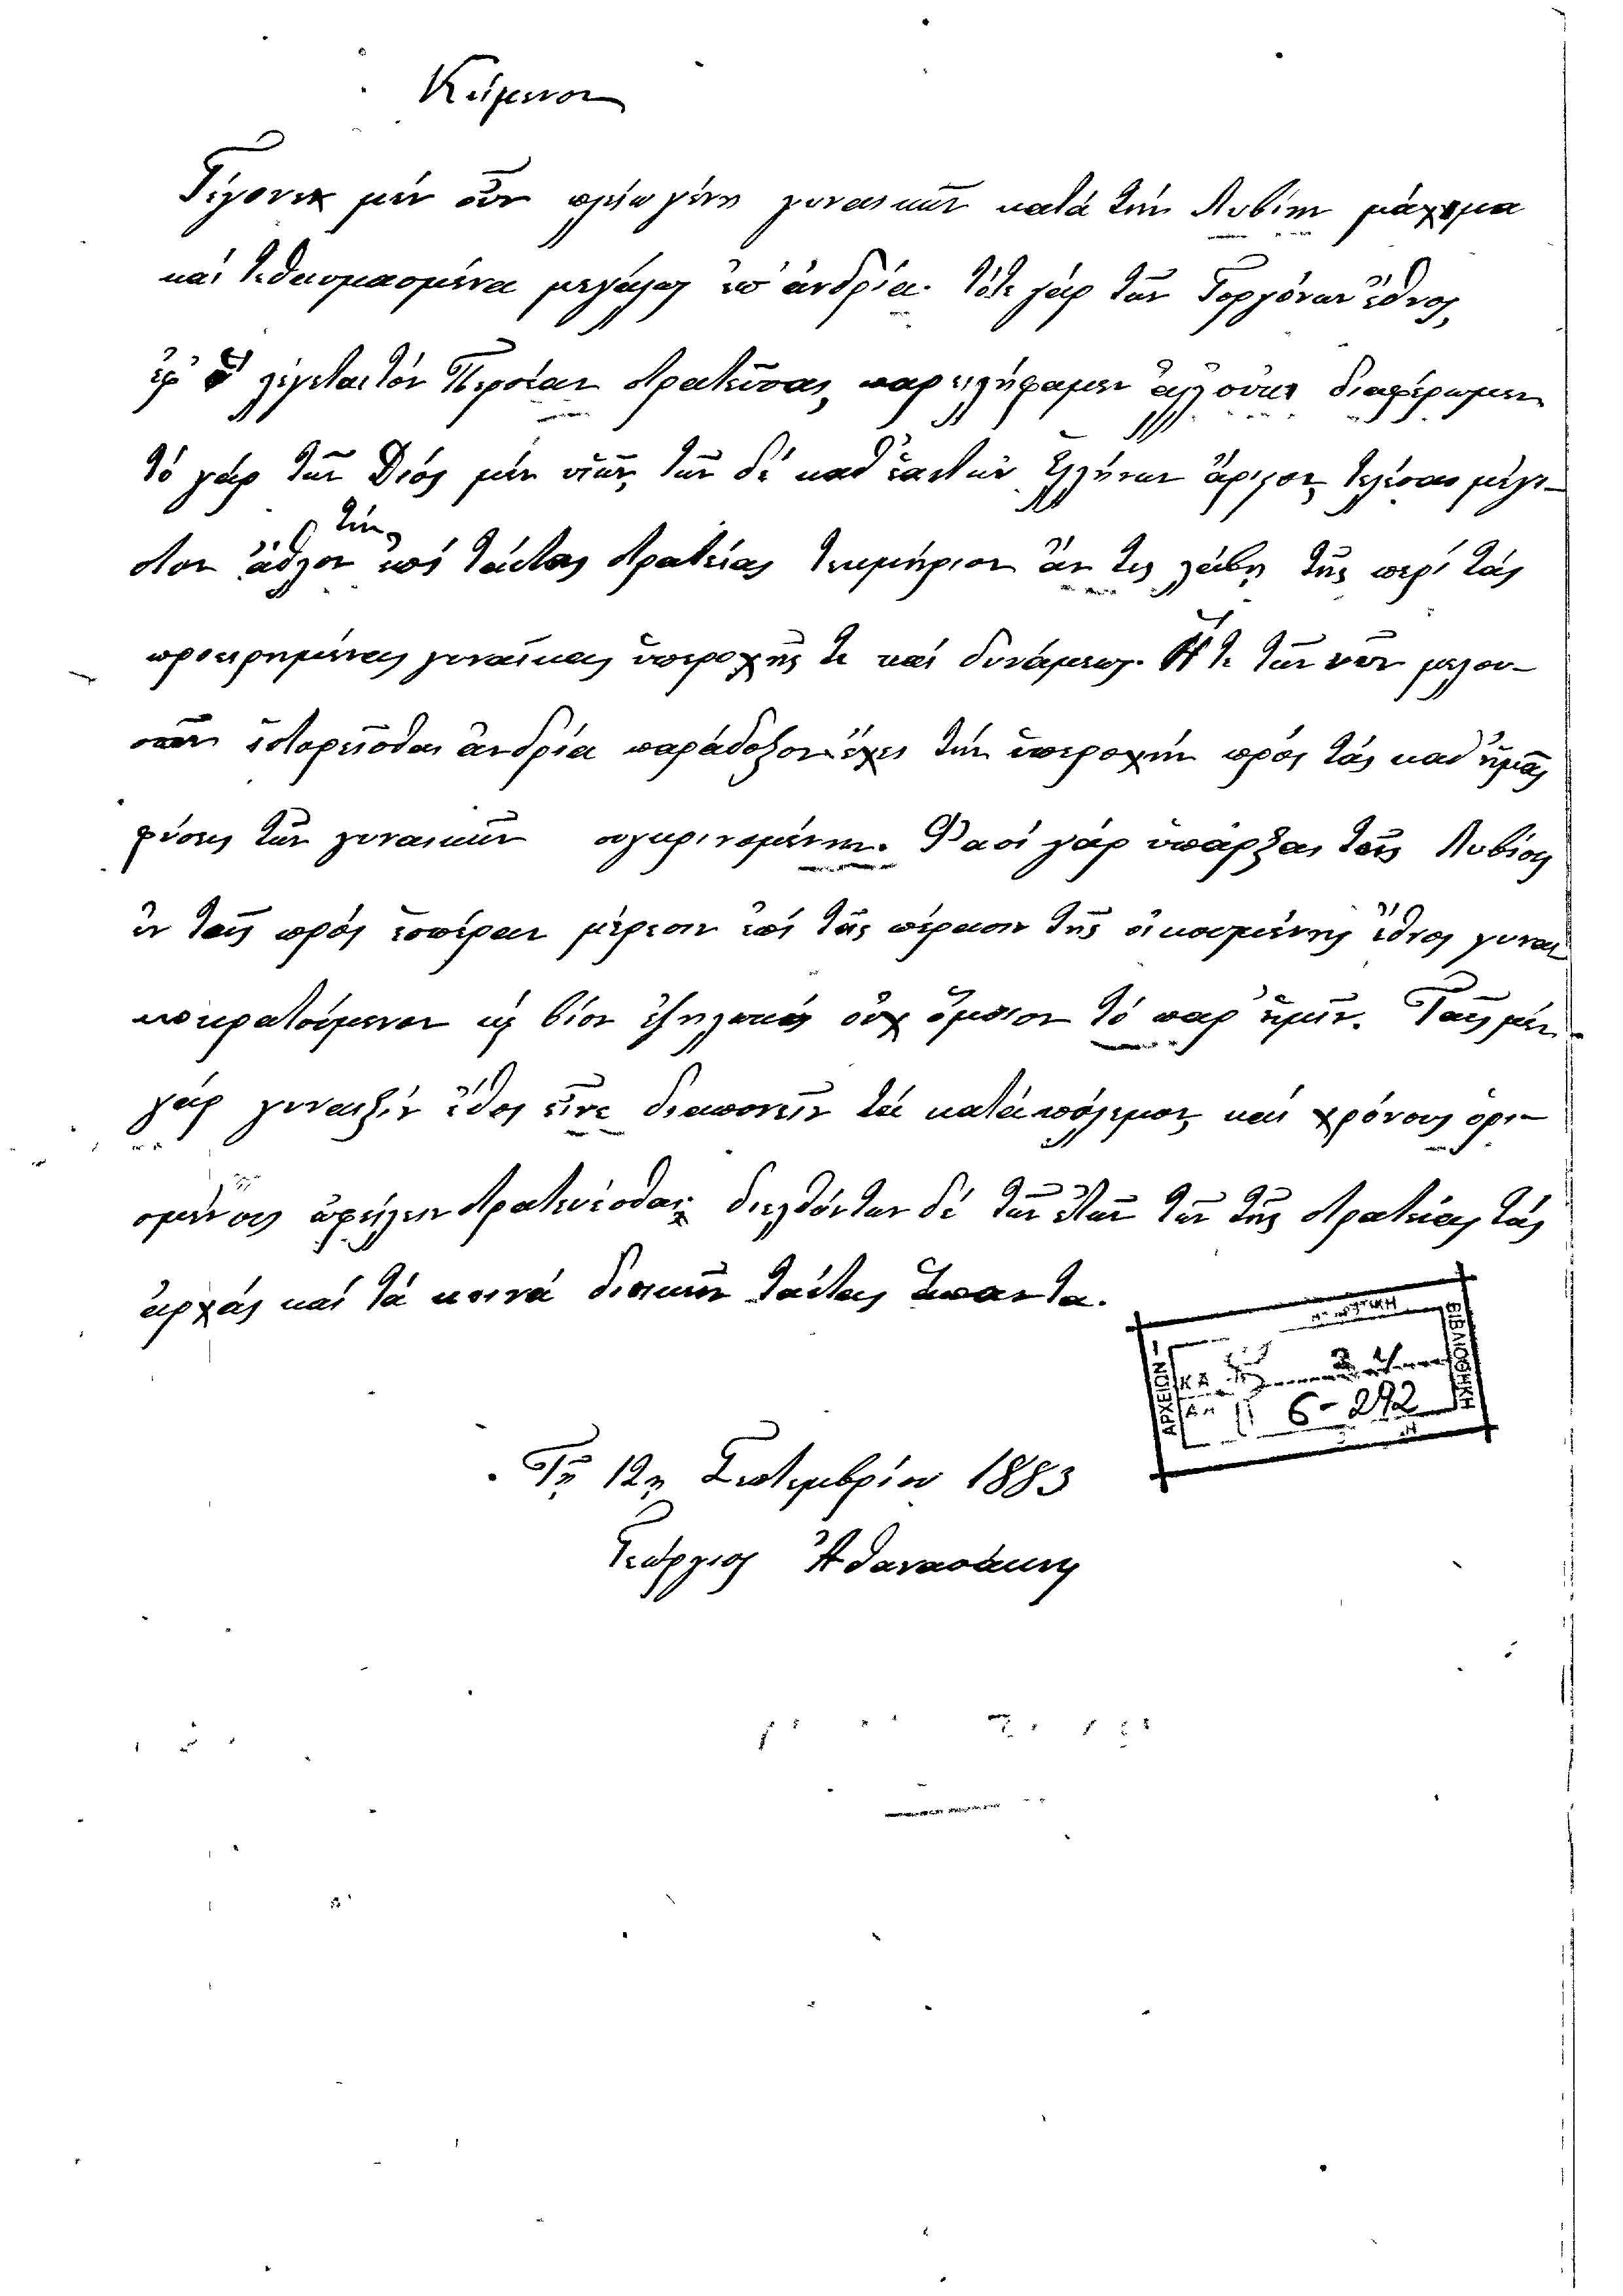 Κείμενον
Γέγονεν μέν οὖν πλείω γένη γυναικῶν κατά τήν Λυβίην μάχιμα
καί τεθαυμασμένα μεγάλως ἐπ' ἀνδρία. τότε γάρ τῶν Γοργόνων ἔθνος,
ἐφ' ὅ λέγεται τόν Περσέαν στρατεῦσαι, παρειλήφαμεν ἀλκῇ διαφέρωμεν
τό γάρ τῶν Διός μέν υἱῶν, τῶν δέ καθ' ἑαυτῶν Ἑλλήνων ἄριστον, τελέσαι μέγι-
στον ἆθλον τήν ἐπί ταύτας στρατείας τεκμήριον ἄν τις λάβῃ τῆς περί τάς
προειρημένας γυναῖκας ὑπεροχῆς τε καί δυνάμεως. Ἥ τε τῶν νῦν μελου-
σῶν ἱστορεῖσθαι ἀνδρία παράδοξον ἔχει τήν ὑπεροχήν πρός τάς καθ' ἡμᾶς
φύσεις τῶν γυναικῶν συγκρινομένην. Φασί γάρ ὑπάρξαι τῆς Λυβίης
ἐν τοῖς πρός ἑσπέραν μέρεσιν ἐπί τῆς πέρασιν τῆς οἰκουμένης ἔθνος γυναι
κοκρατούμενον ὡς βίον ἐζηλωκός οὐχ ὅμοιον τό παρ' ἡμῖν. Ταῖς μέν
γάρ γυναιξίν ἔθος εἶνε διαπονεῖν τά κατά πόλεμον, καί χρόνους ὁρι-
σμένους ὀφείλειν στρατεύεσθαι, διελθόντων δέ τῶν ἐτῶν τῶν τῆς στρατείας τάς
ἀρχάς καί τά κοινά διοικεῖν ταύτας ἅπαντα.
ΑΡΧΕΙΟΝ
ΒΙΒΛΙΟΘΗΚΗ
6-292
Τῇ 12ῃ Σεπτεμβρίου 1883
Γεώργιος Ἀθανασάκης